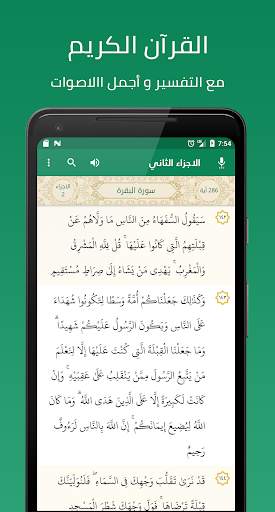 القرآن الكريم
مع التفسير و أجمل االاصوات
7:54
الاجزاء الثاني
286 آية
سورة البقرة
الاجزاء
2
١٤٢
سَيَقُولُ السُّفَهَاءُ مِنَ النَّاسِ مَا وَلَّاهُمْ عَن
قِبْلَتِهِمُ الَّتِي كَانُوا عَلَيْهَا ۚ قُل لِّلَّهِ الْمَشْرِقُ
وَالْمَغْرِبُ ۚ يَهْدِي مَن يَشَاءُ إِلَىٰ صِرَاطٍ مُّسْتَقِيمٍ
١٤٣
وَكَذَٰلِكَ جَعَلْنَاكُمْ أُمَّةً وَسَطًا لِّتَكُونُوا شُهَدَاءَ
عَلَى النَّاسِ وَيَكُونَ الرَّسُولُ عَلَيْكُمْ شَهِيدًا ۗ
وَمَا جَعَلْنَا الْقِبْلَةَ الَّتِي كُنتَ عَلَيْهَا إِلَّا لِنَعْلَمَ
مَن يَتَّبِعُ الرَّسُولَ مِمَّن يَنقَلِبُ عَلَىٰ عَقِبَيْهِ ۚ وَإِن
كَانَتْ لَكَبِيرَةً إِلَّا عَلَى الَّذِينَ هَدَى اللَّهُ ۗ وَمَا كَانَ
اللَّهُ لِيُضِيعَ إِيمَانَكُمْ ۚ إِنَّ اللَّهَ بِالنَّاسِ لَرَءُوفٌ
رَّحِيمٌ
١٤٤
قَدْ نَرَىٰ تَقَلُّبَ وَجْهِكَ فِي السَّمَاءِ ۖ فَلَنُوَلِّيَنَّكَ
قِبْلَةً تَرْضَاهَا ۚ فَوَلِّ وَجْهَكَ شَطْرَ الْمَسْجِدِ